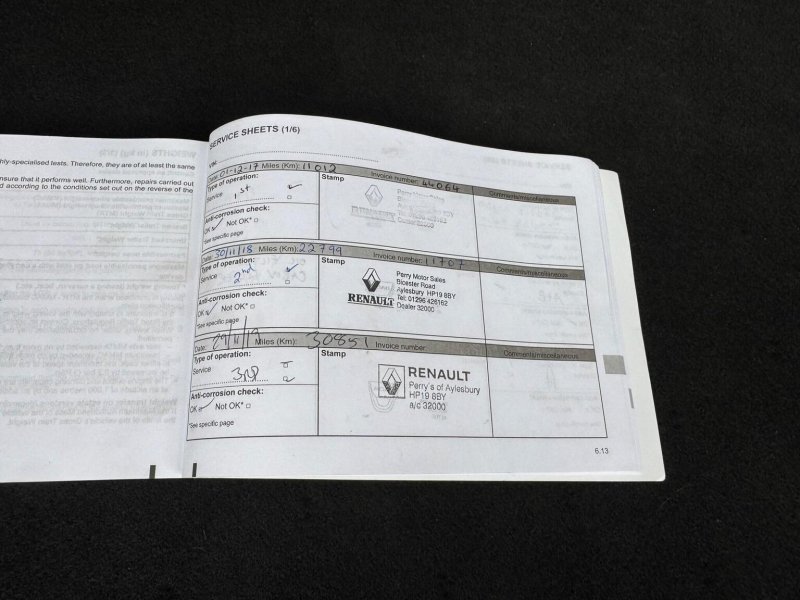 hly-specialised tests. Therefore, they are of at least the same
nsure that it performs well. Furthermore, repairs carried out
d according to the conditions set out on the reverse of the
SERVICE SHEETS (1/6)
VIN:
Date: 01-12-17 Miles (Km): 11012 Invoice number: 44064 Comments/miscellaneous
Type of operation:
Service 1st
Stamp
Perry Motor Sales
Dealer 32000
Anti-corrosion check:
OK ✓ Not OK*
*See specific page
Date: 30/11/18 Miles (Km): 22799 Invoice number: 11707 Comments/miscellaneous
Type of operation:
Service 2nd
Stamp
RENAULT
Perry Motor Sales
Bicester Road
Aylesbury HP19 8BY
Tel: 01296 426162
Dealer 32000
Anti-corrosion check:
OK ✓ Not OK*
*See specific page
Date: 29/11/19 Miles (Km): 30851 Invoice number: Comments/miscellaneous
Type of operation:
Service 3RD
Stamp
RENAULT
Perry's of Aylesbury
HP19 8BY
a/c 32000
Anti-corrosion check:
OK ✓ Not OK*
*See specific page
6.13